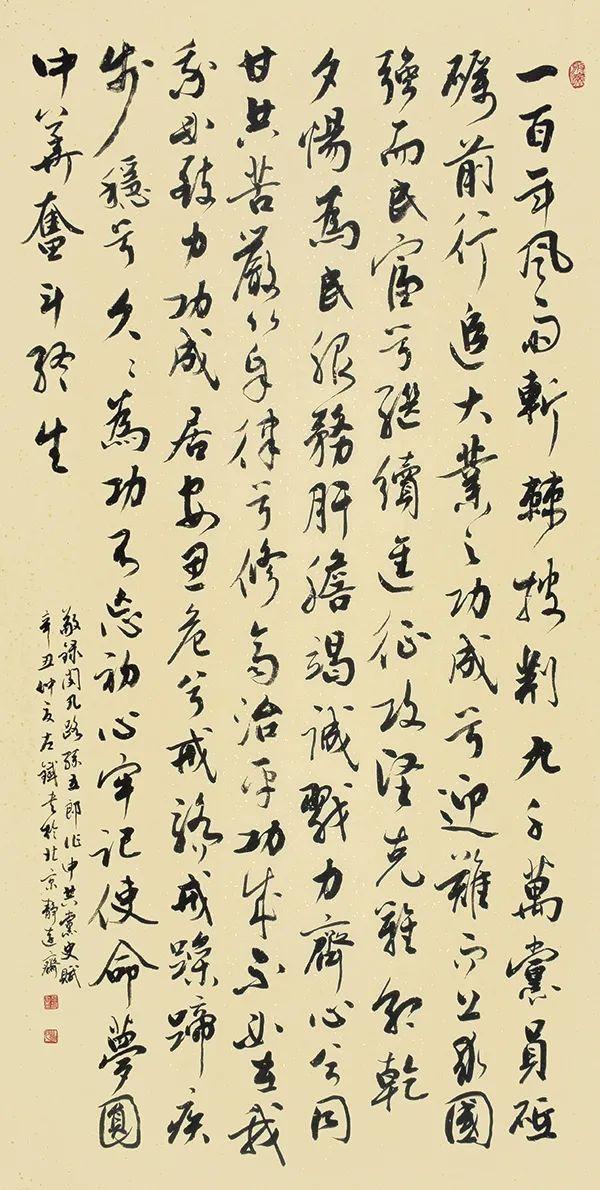 一百年風雨斬棘披荆九千萬黨員砥
礪前行追大業之功成兮迎難而上求國
强而民富兮繼續進征攻堅克難朝乾
夕惕爲民服務肝膽竭誠戮力齊心兮同
甘共苦嚴以自律兮修齊治平功成不必在我
我必致力功成居安思危兮戒驕戒躁蹄疾
步穩兮久久爲功不忘初心牢記使命夢圓
中華奮斗終生
敬録閔凡路孫五郎作中共黨史賦
辛丑仲夏左鐵書於北京靜遠齋